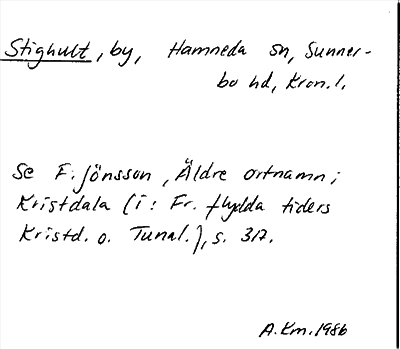 Stighult, by, Hamneda sn, Sunner-
bo hd, Kron.l.
Se F. Jönsson, Äldre ortnamn i
Kristdala (i: Fr. flydda tiders
Kristd. o. Tunal.), s. 317.
A.Km.1986